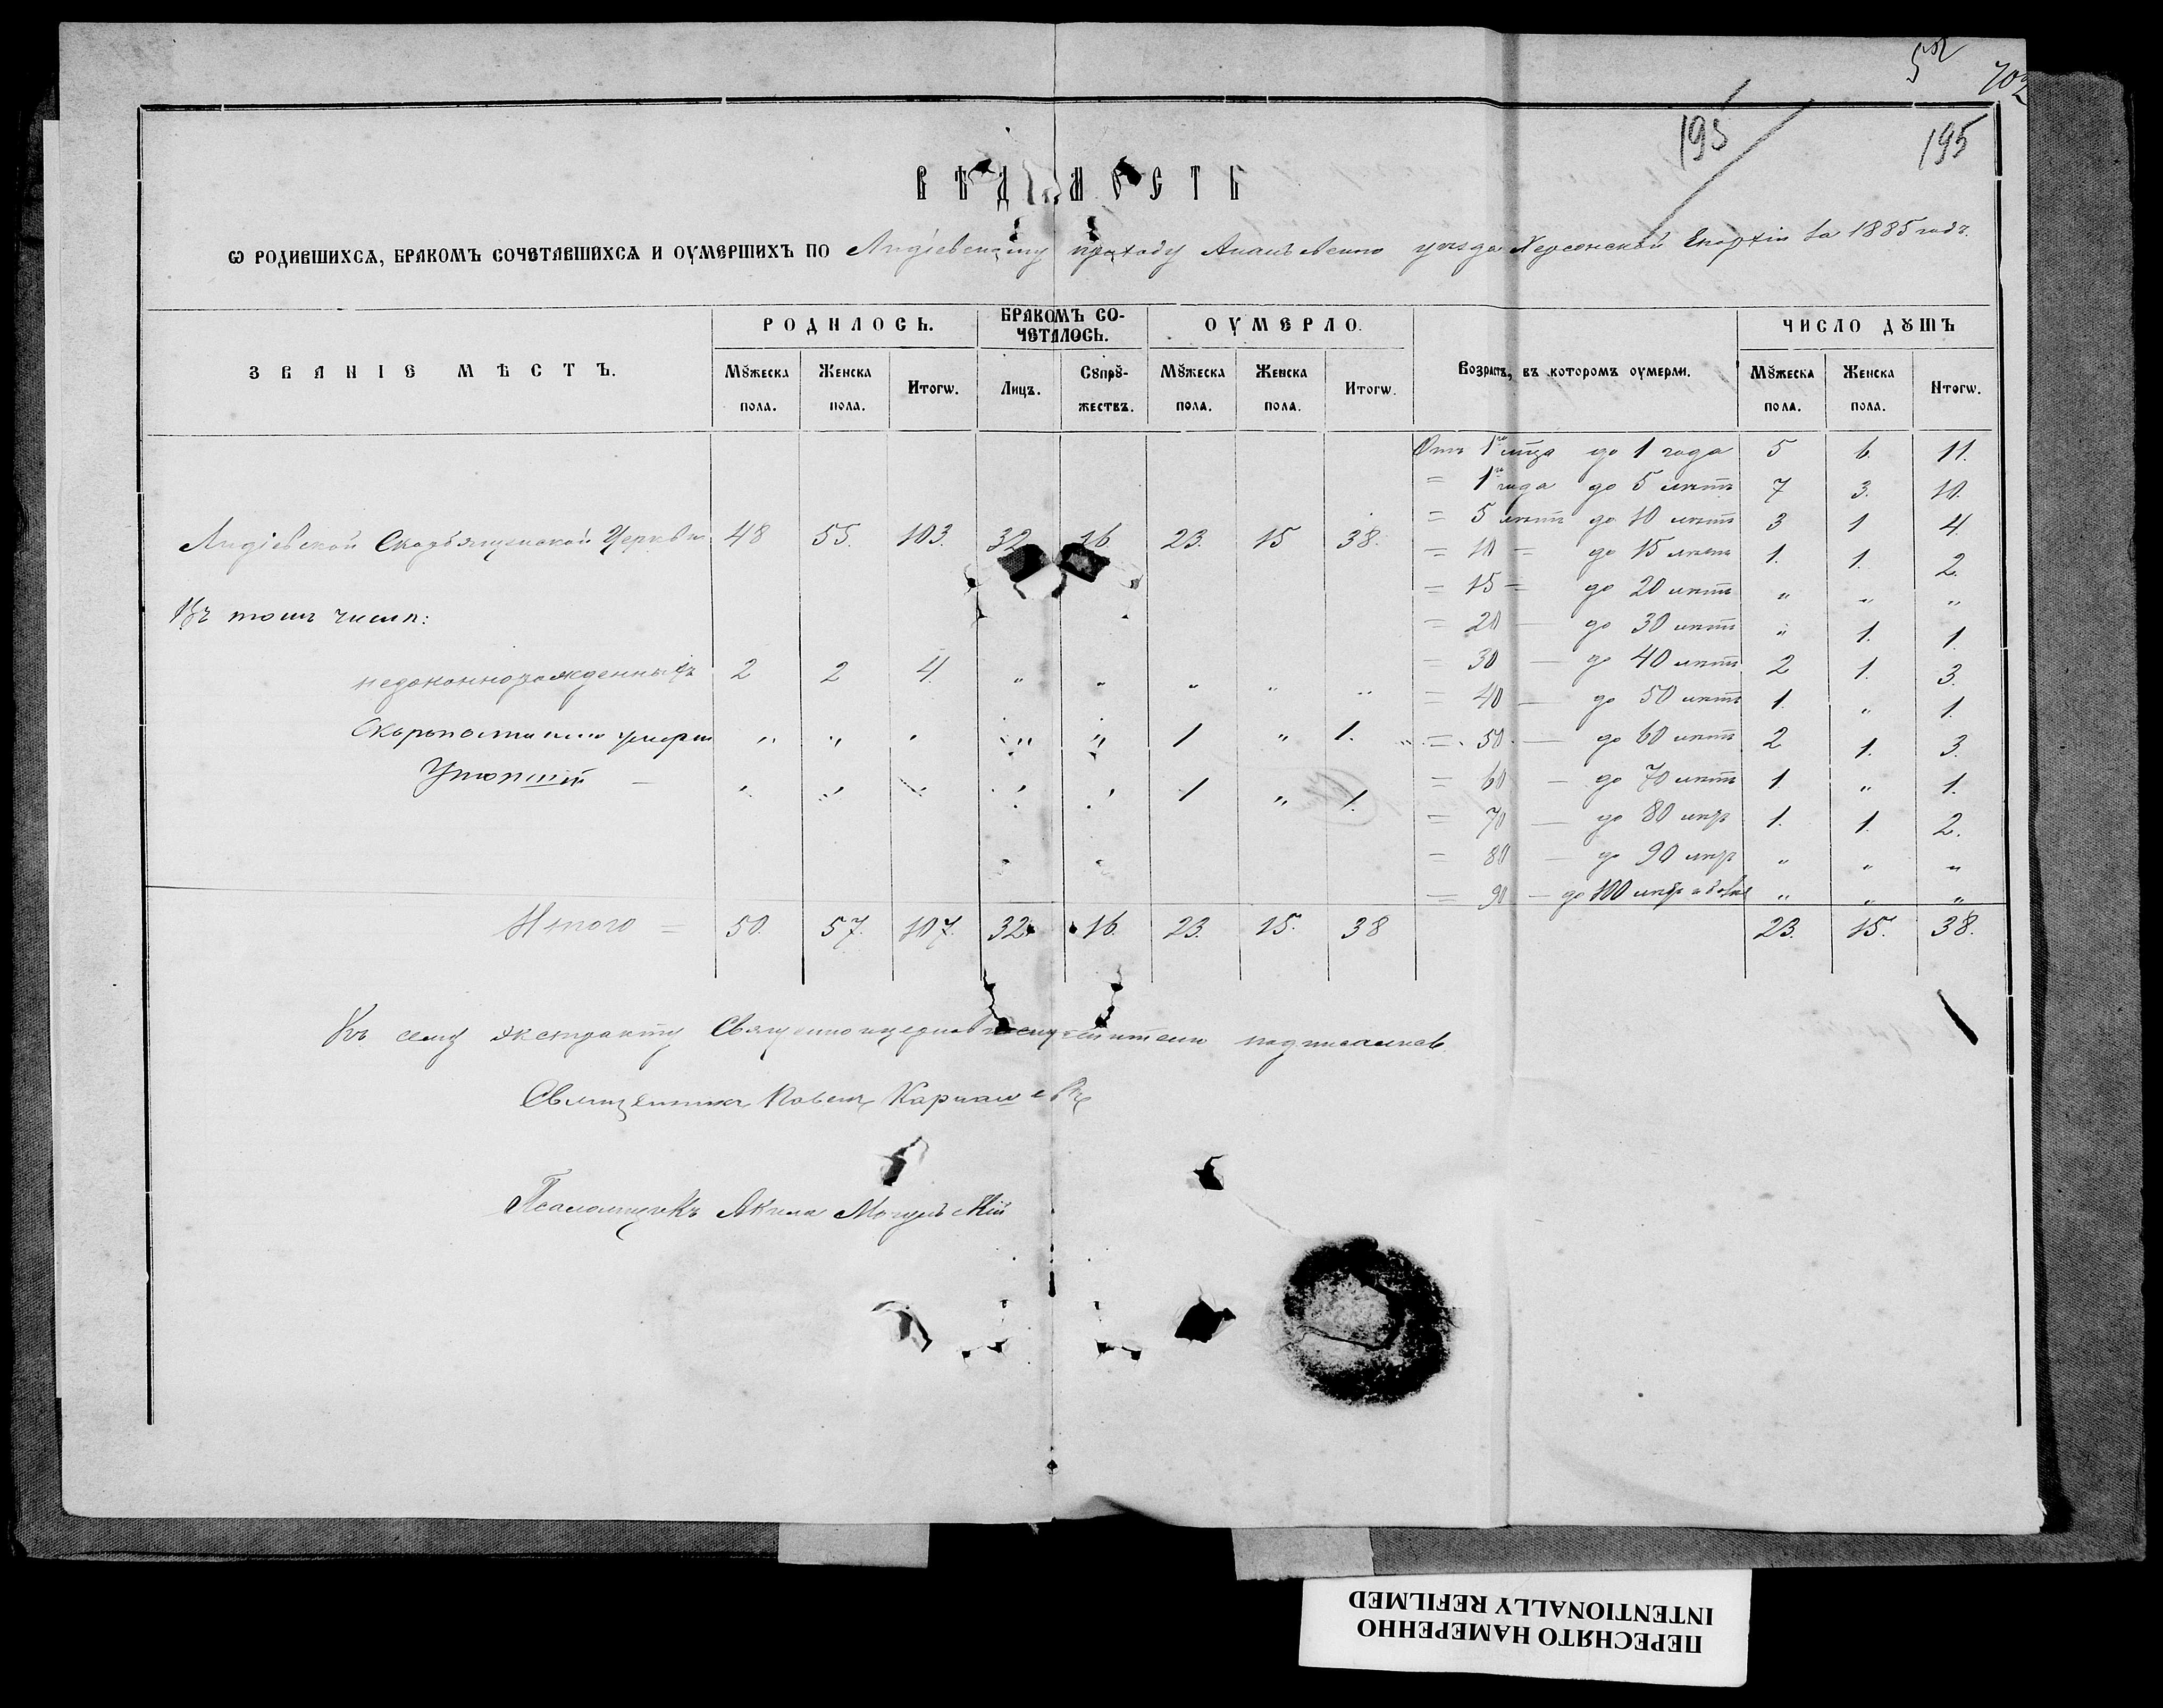 195
195
ВѢДОМОСТЬ
Ѡ РОДИВШИХСѦ, БРАКОМЪ СОЧЕТАВШИХСѦ И ОУМЕРШИХЪ ПО Лидіевскому приходу Ананьевскаго уѣзда Херсонской Епархіи за 1885 годъ.
ЗВАНІЕ МѢСТЪ. РОДИЛОСЬ. БРАКОМЪ СО-ЧЕТАЛОСЬ. ОУМЕРЛО. Возрастъ, въ которомъ оумерли. ЧИСЛО ДꙊШЪ
Мꙋжеска пола. Женска пола. Итогѡ. Лицъ. Сꙋпрꙋ-жествъ. Мꙋжеска пола. Женска пола. Итогѡ. Мꙋжеска пола. Женска пола. Итогѡ.
Отъ 1го мца до 1 года 5 6. 11.
= 1го года до 5 лѣтъ 7 3. 10.
= 5 лѣтъ до 10 лѣтъ 3 1 4.
Лидіевской Скорбященской Церкви 48 55. 103. 32 16 23. 15 38.
= 10 = до 15 лѣтъ 1. 1. 2.
= 15 = до 20 лѣтъ " " "
Въ томъ числѣ:
= 20 — до 30 лѣтъ " 1. 1.
= 30 — до 40 лѣтъ 2 1. 3.
незаконнорожденныхъ 2 2 4. " " " " "
= 40 — до 50 лѣтъ 1. " 1.
Скоропостижно умерш " " " " " 1 " 1.
= 50 — до 60 лѣтъ 2 1. 3.
Утопшій — " " " " " 1 " 1.
= 60 — до 70 лѣтъ 1. " 1.
= 70 — до 80 лѣтъ 1. 1. 2.
= 80 — до 90 лѣтъ " " "
= 90 — до 100 лѣтъ и болѣе " " "
Итого = 50. 57. 107. 32. 16. 23. 15. 38 23. 15. 38.
Къ сему экстракту Священноцерковнослужители подписались
Священникъ Павелъ
Псаломщикъ Акила
ПЕРЕСНЯТО НАМЕРЕННО
INTENTIONALLY REFILMED